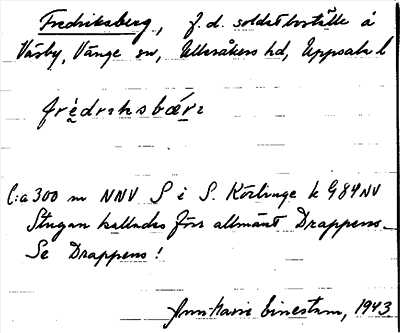 Fredriksberg, f.d. soldatboställe å
Väsby, Vänge sn, Ulleråkers hd, Uppsala l
frèdrıksbær̨ı
C:a 300 m NNV S i S. Körlinge k G84NV
Stugan kallades förr allmänt Drappens
Se Drappens!
Ann-Marie Einestam, 1943